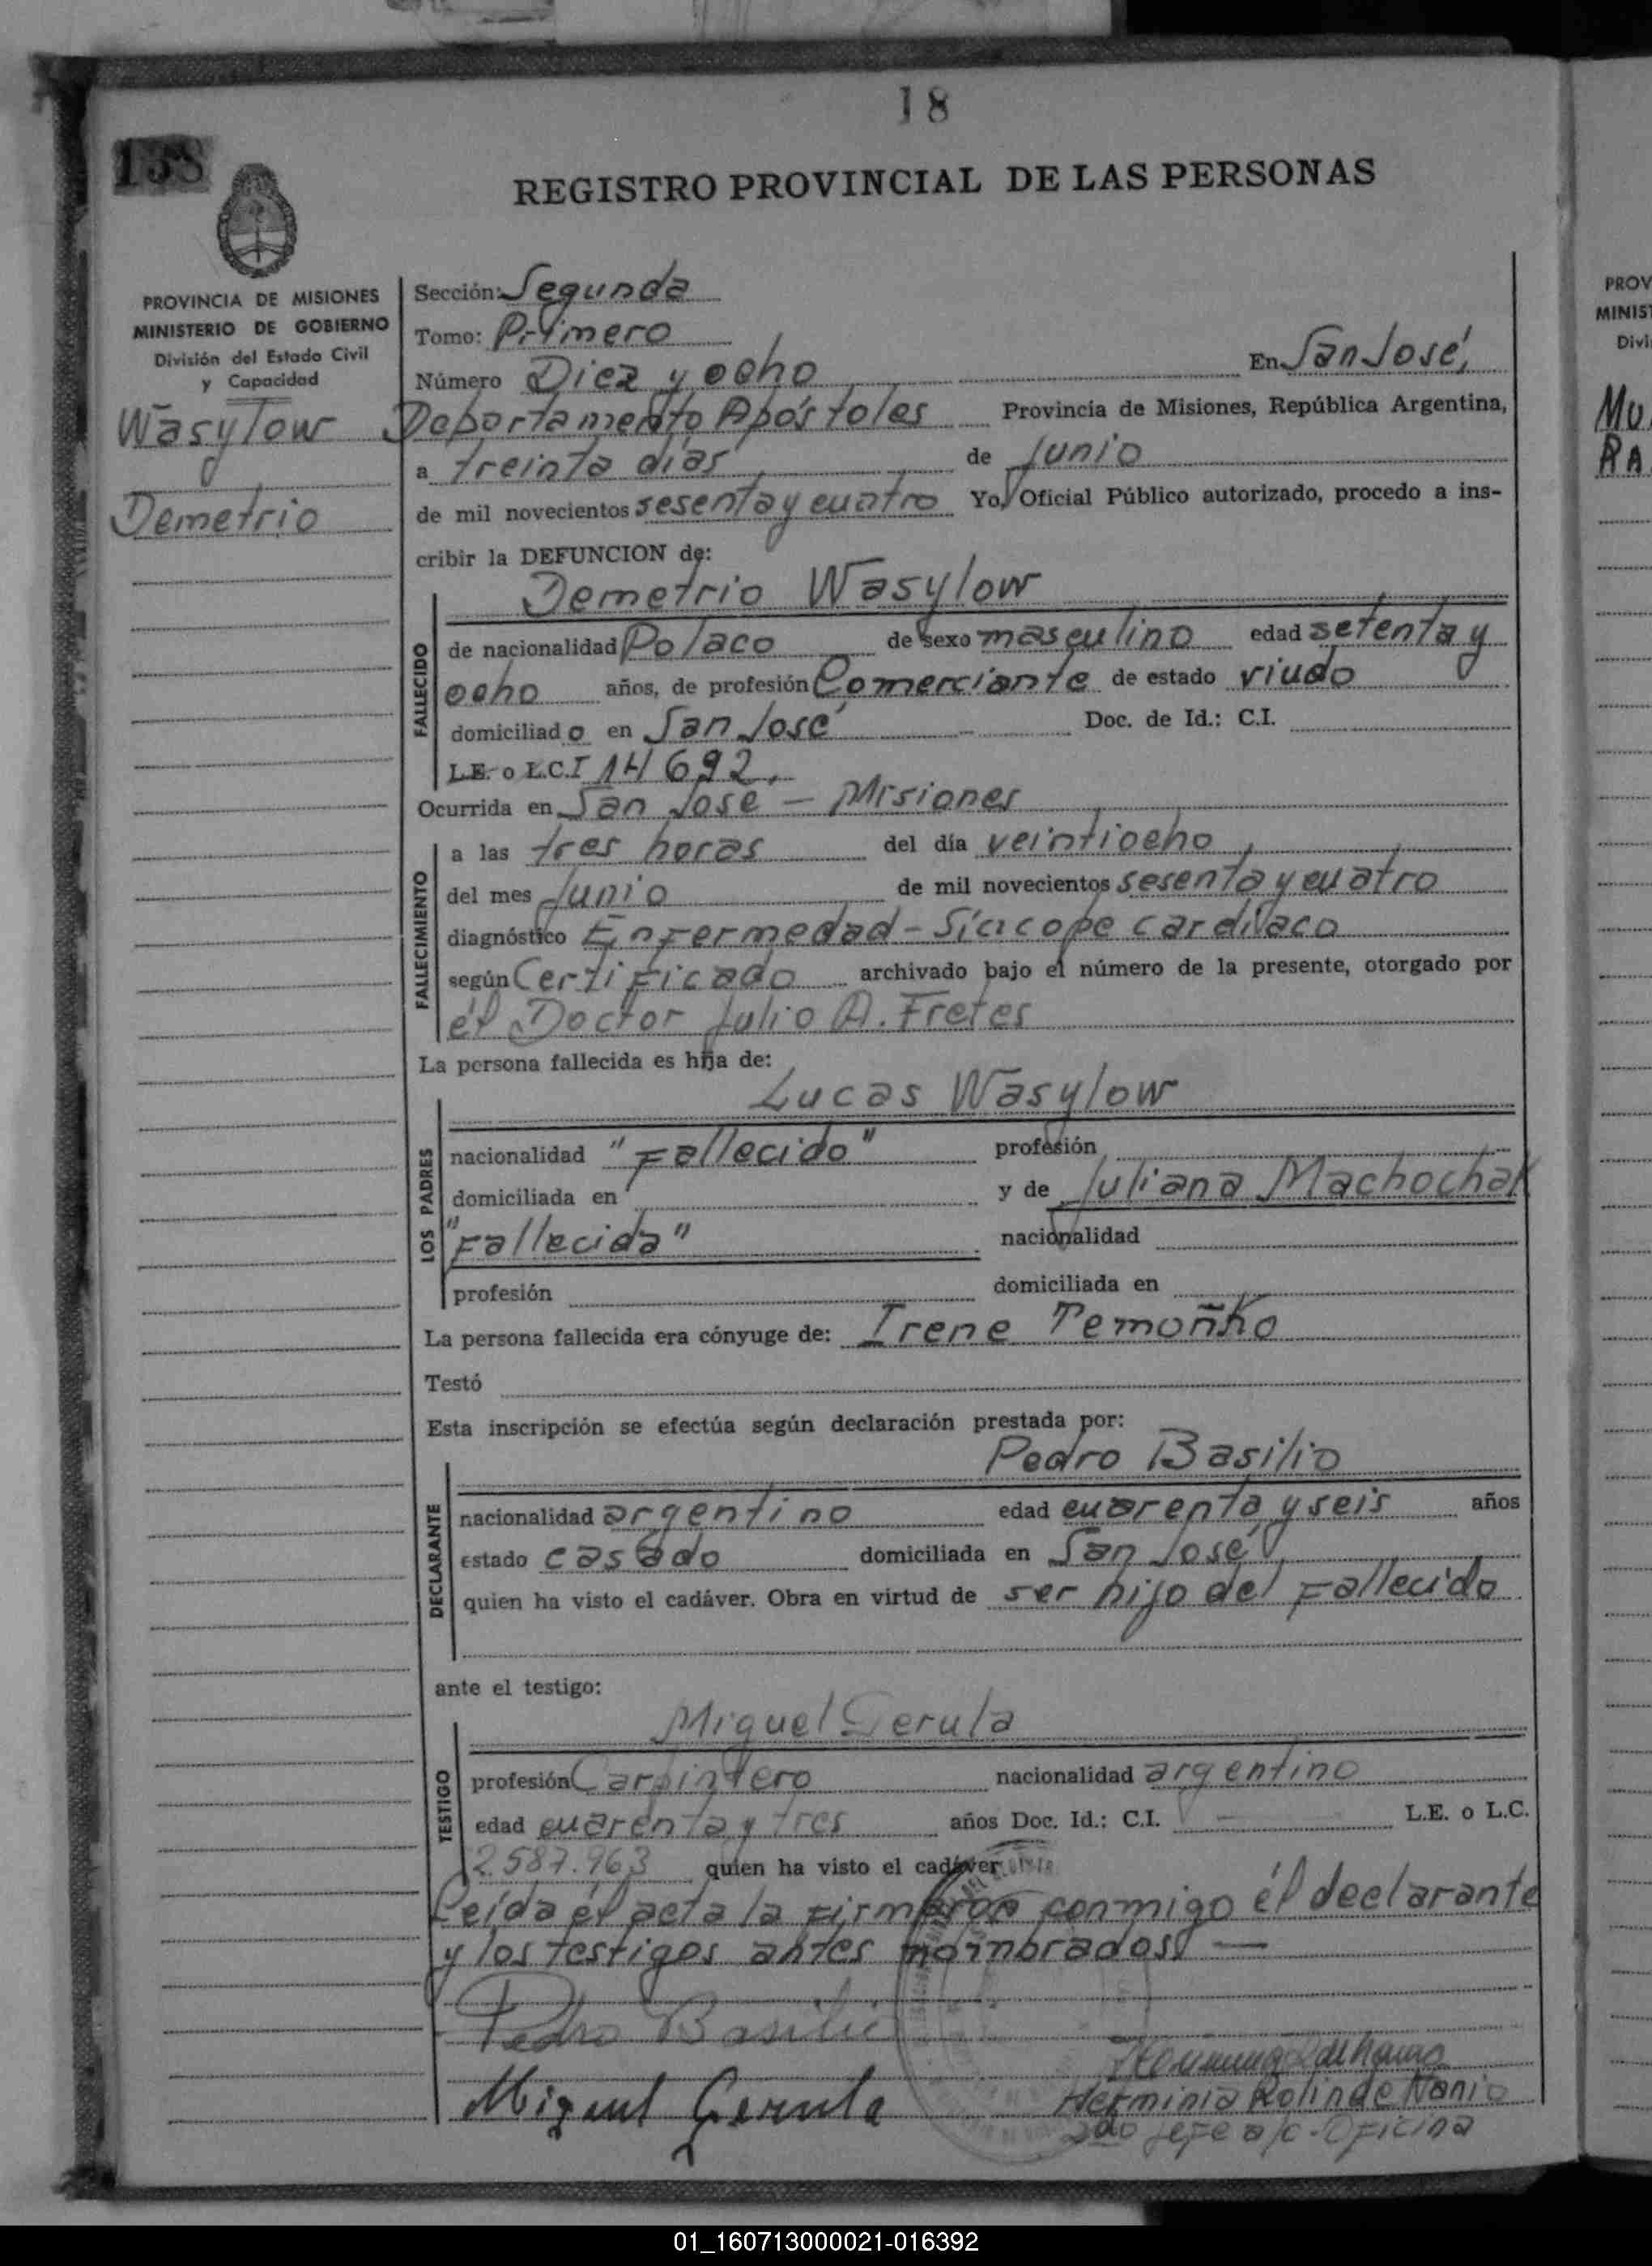 18
138
REGISTRO PROVINCIAL DE LAS PERSONAS
PROVINCIA DE MISIONES
MINISTERIO DE GOBIERNO
División del Estado Civil
y Capacidad
Wasylow
Demetrio
Sección: Segunda
Tomo: Primero
Número Diez y ocho En San José,
Departamento Apóstoles Provincia de Misiones, República Argentina,
a treinta días de Junio
de mil novecientos sesenta y cuatro Yo, Oficial Público autorizado, procedo a ins-
cribir la DEFUNCION de:
Demetrio Wasylow
FALLECIDO
de nacionalidad Polaco de sexo masculino edad setenta y
ocho años, de profesión Comerciante de estado viudo
domiciliado en San José Doc. de Id.: C.I.
L.E. o L.C.I 14692.
Ocurrida en San José - Misiones
FALLECIMIENTO
a las tres horas del día veintiocho
del mes Junio de mil novecientos sesenta y cuatro
diagnóstico Enfermedad - Síncope cardíaco
según Certificado archivado bajo el número de la presente, otorgado por
él Doctor Julio A. Fretes
La persona fallecida es hija de:
Lucas Wasylow
LOS PADRES
nacionalidad "Fallecido" profesión
domiciliada en y de Juliana Machochak
"Fallecida" nacionalidad
profesión domiciliada en
La persona fallecida era cónyuge de: Irene Temoñko
Testó
Esta inscripción se efectúa según declaración prestada por:
Pedro Basilio
DECLARANTE
nacionalidad argentino edad cuarenta y seis años
estado casado domiciliada en San José
quien ha visto el cadáver. Obra en virtud de ser hijo del fallecido
ante el testigo:
Miguel Gerula
TESTIGO
profesión Carpintero nacionalidad argentino
edad cuarenta y tres años Doc. Id.: C.I. — L.E. o L.C.
2.587.963 quien ha visto el cadáver
Leída él acta la firmaron conmigo él declarante
y los testigos antes nombrados —
Pedro Basilio
Miguel Gerula
Herminia Rolin de Nani
2do Jefe a/c - Oficina
PROV
MINIST
Divi
MU
RA
01_160713000021-016392